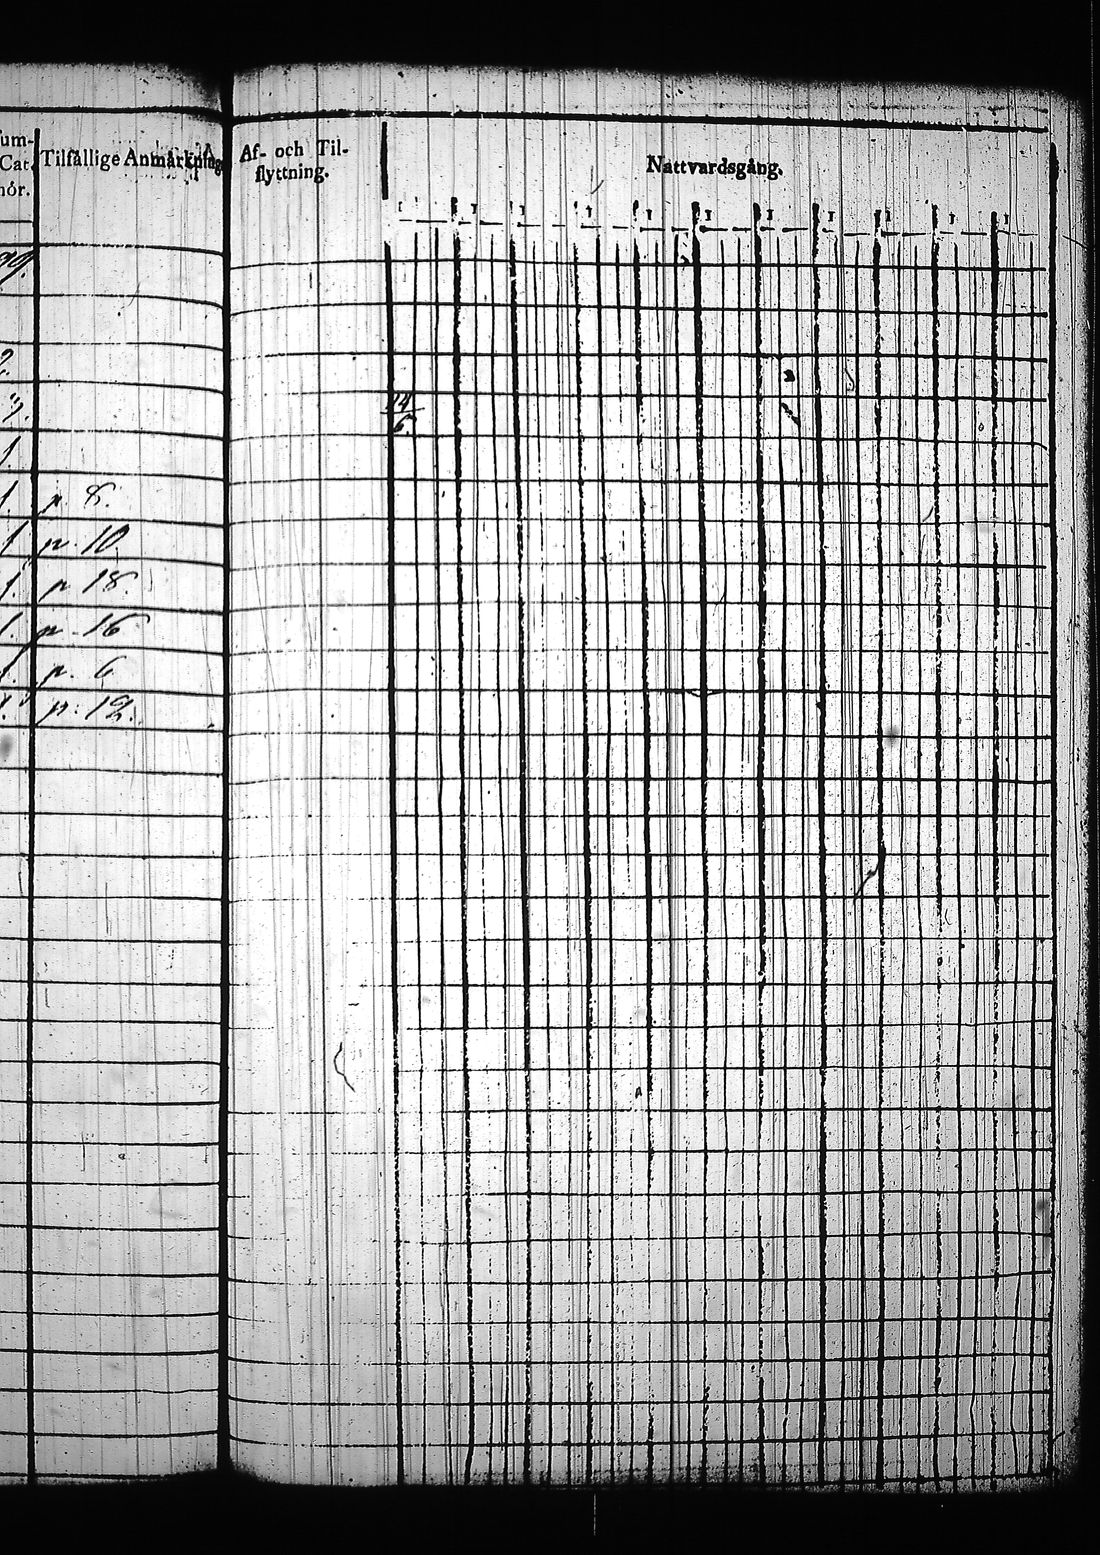 um-
Cat.
hör.
Tilfällige Anmärkning.
Af- och Til-
flyttning.
Nattvardsgång.
1 1 1 1 1 1 1 1 1
24
6.
1. p. 8.
1 p. 10.
1. p 18.
1. p. 16
1 p. 6
1. p. 12.